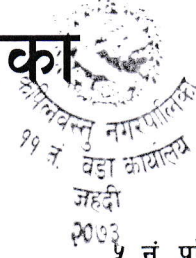 का
कपिलवस्तु नगरपालिका
११ नं. वडा कार्यालय
जहदी
२०७३
५ नं. प